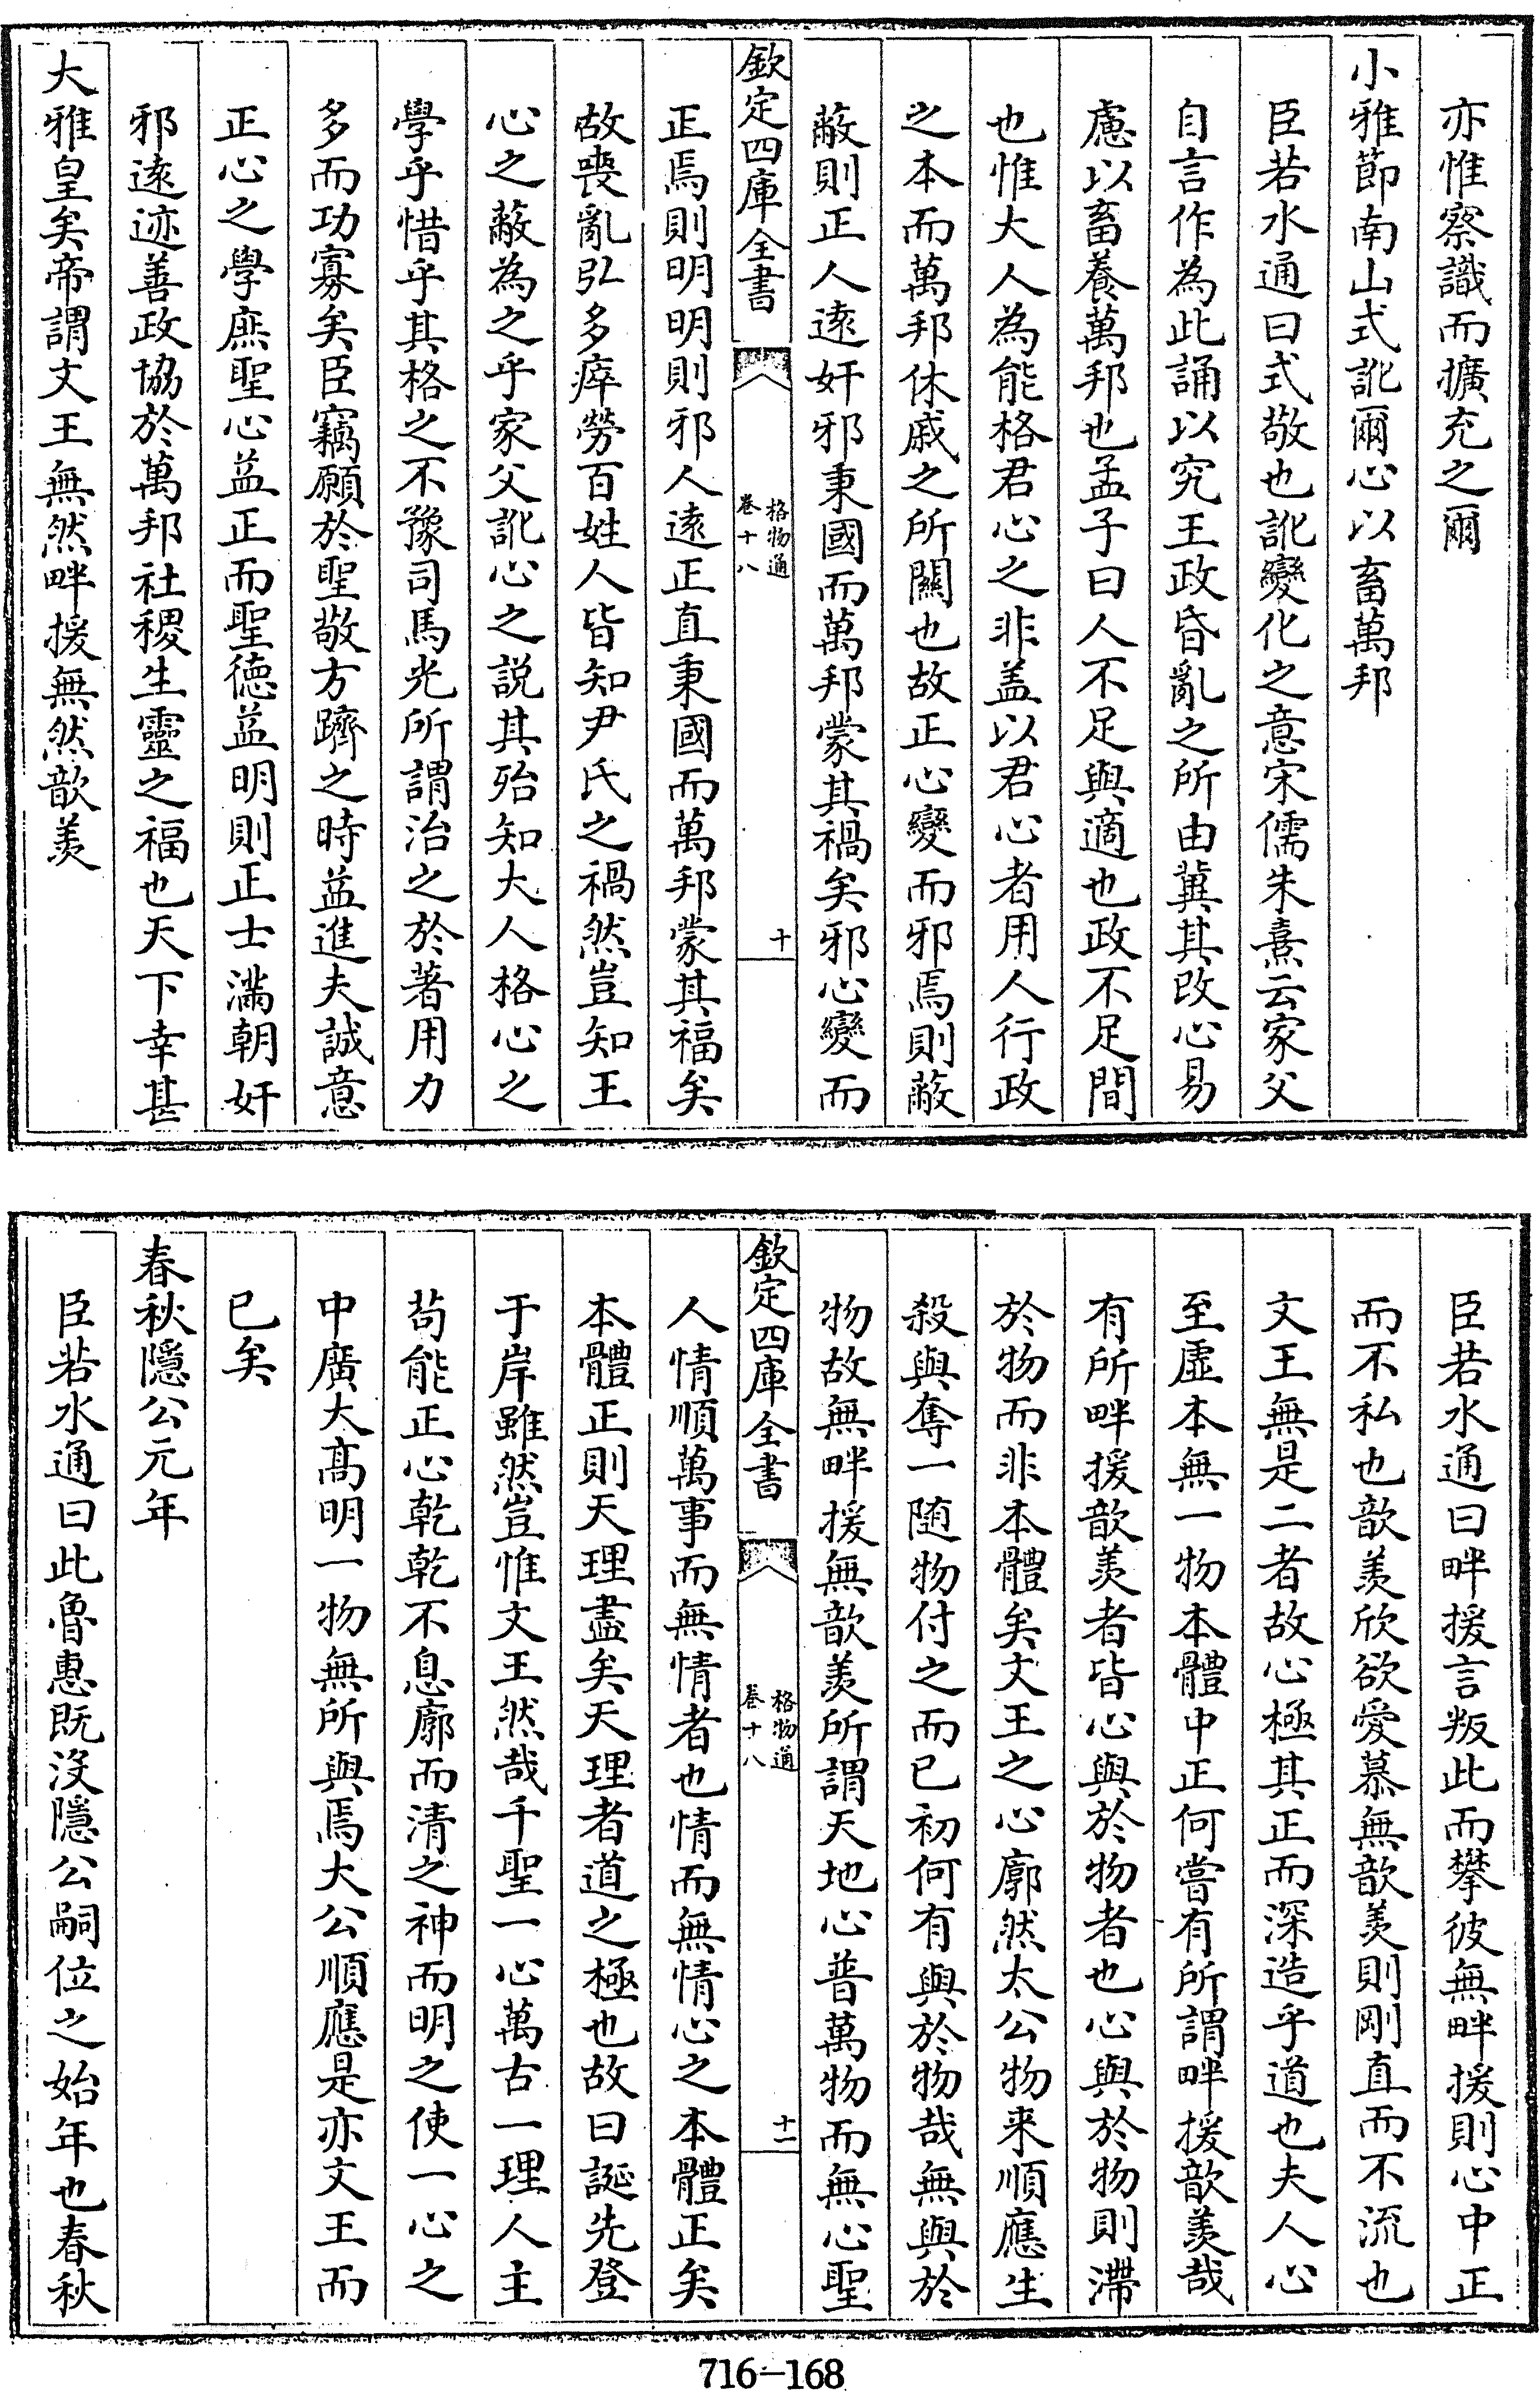 亦惟察識而擴充之爾
小雅節南山式訛爾心以畜萬邦
臣若水通曰式敬也訛變化之意宋儒朱熹云家父
自言作為此誦以究王政昏亂之所由冀其改心易
慮以畜養萬邦也孟子曰人不足與適也政不足間
也惟大人為能格君心之非盖以君心者用人行政
之本而萬邦休戚之所關也故正心變而邪焉則蔽
蔽則正人逺奸邪秉國而萬邦蒙其禍矣邪心變而
欽定四庫全書
格物通
卷十八
十
正焉則明明則邪人逺正直秉國而萬邦蒙其福矣
故喪亂弘多瘁勞百姓人皆知尹氏之禍然豈知王
心之蔽為之乎家父訛心之説其殆知大人格心之
學乎惜乎其格之不豫司馬光所謂治之於著用力
多而功寡矣臣竊願於聖敬方躋之時益進夫誠意
正心之學庶聖心益正而聖徳益明則正士滿朝奸
邪逺迹善政協於萬邦社稷生靈之福也天下幸甚
大雅皇矣帝謂文王無然畔援無然歆羡
臣若水通曰畔援言叛此而攀彼無畔援則心中正
而不私也歆羡欣欲愛慕無歆羡則剛直而不流也
文王無是二者故心極其正而深造乎道也夫人心
至虛本無一物本體中正何嘗有所謂畔援歆羡哉
有所畔援歆羡者皆心與於物者也心與於物則滯
於物而非本體矣文王之心廓然太公物来順應生
殺與奪一随物付之而已初何有與於物哉無與於
物故無畔援無歆羡所謂天地心普萬物而無心聖
欽定四庫全書
格物通
卷十八
十一
人情順萬事而無情者也情而無情心之本體正矣
本體正則天理盡矣天理者道之極也故曰誕先登
于岸雖然豈惟文王然哉千聖一心萬古一理人主
茍能正心乾乾不息廓而清之神而明之使一心之
中廣大髙明一物無所與焉大公順應是亦文王而
已矣
春秋隱公元年
臣若水通曰此魯惠既沒隱公嗣位之始年也春秋
716-168